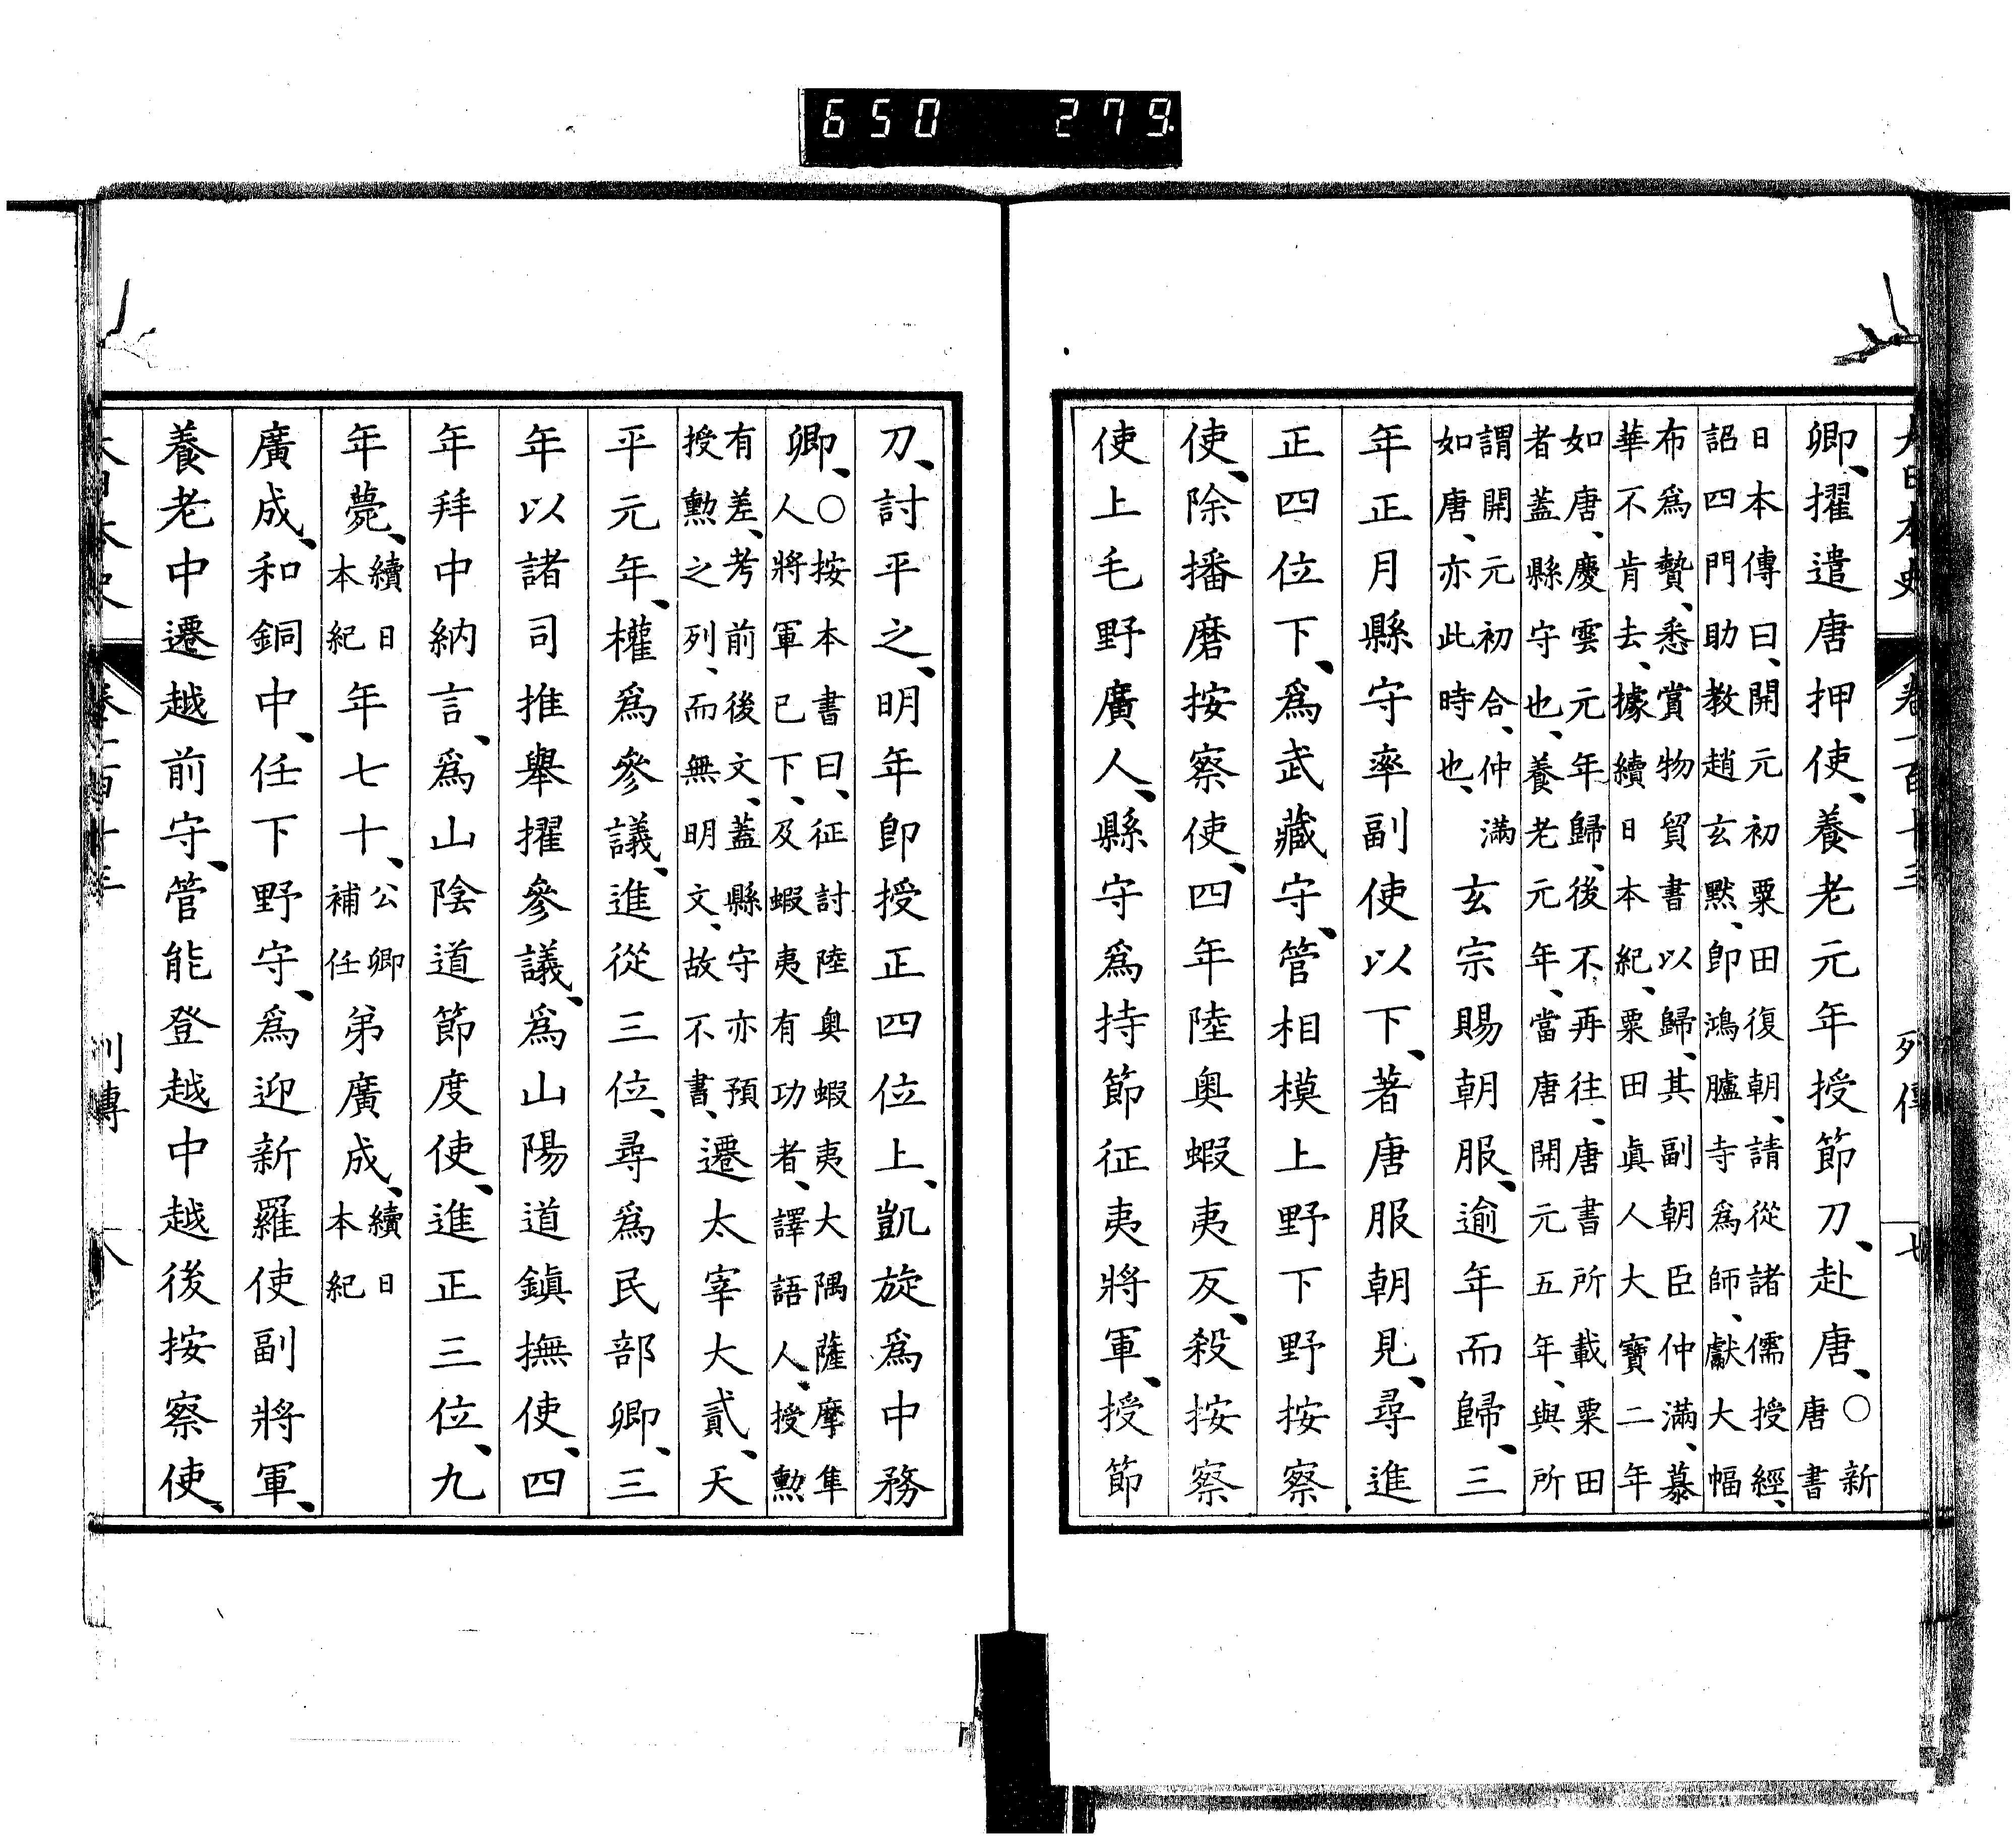 650 279
大日本史 卷一百十三 列傳 七
卿、擢遣唐押使、養老元年授節刀、赴唐、○新唐書
日本傳曰、開元初粟田復朝、請從諸儒授經、
詔四門助教趙玄默、卽鴻臚寺爲師、獻大幅
布爲贄、悉賞物貿書以歸、其副朝臣仲滿、慕
華不肯去、據續日本紀、粟田眞人大寶二年
如唐、慶雲元年歸、後不再往、唐書所載粟田
者蓋縣守也、養老元年、當唐開元五年、與所
謂開元初合、仲滿
如唐、亦此時也、玄宗賜朝服、逾年而歸、三
年正月縣守率副使以下、著唐服朝見、尋進
正四位下、爲武藏守、管相模上野下野按察
使、除播磨按察使、四年陸奥蝦夷反、殺按察
使上毛野廣人、縣守爲持節征夷將軍、授節
刀、討平之、明年卽授正四位上、凱旋爲中務
卿、○按本書曰、征討陸奥蝦夷大隅薩摩隼
人將軍已下、及蝦夷有功者、譯語人、授勲
有差、考前後文、蓋縣守亦預
授勲之列、而無明文、故不書、遷太宰大貳、天
平元年、權爲參議、進從三位、尋爲民部卿、三
年以諸司推舉擢參議、爲山陽道鎭撫使、四
年拜中納言、爲山陰道節度使、進正三位、九
年薨、續日本紀年七十、公卿補任弟廣成、續日本紀
廣成、和銅中、任下野守、爲迎新羅使副將軍、
養老中遷越前守、管能登越中越後按察使、
大日本史 卷一百十三 列傳 八